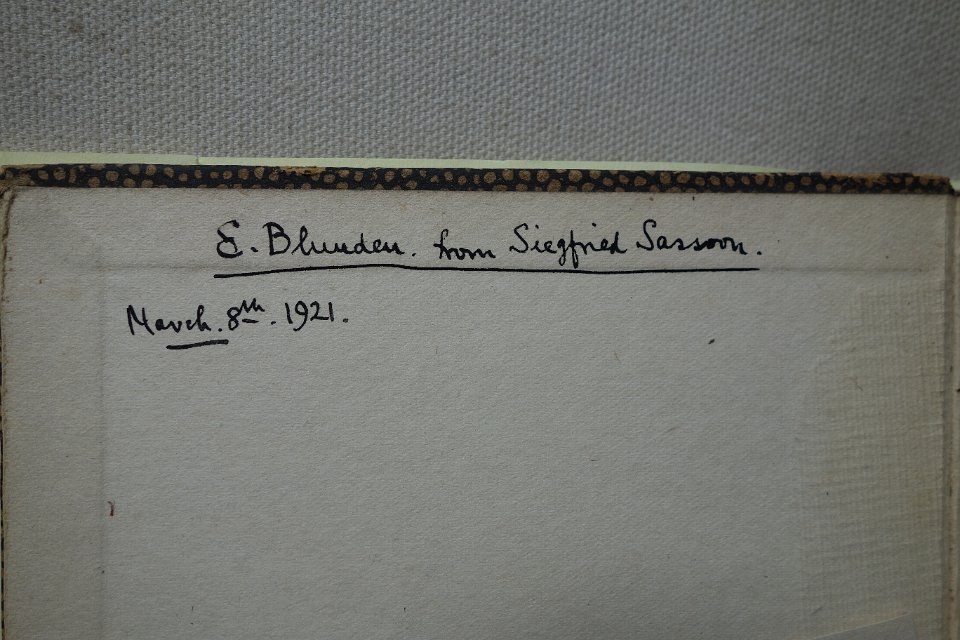 E. Blunden. from Siegfried Sassoon.
March. 8th. 1921.